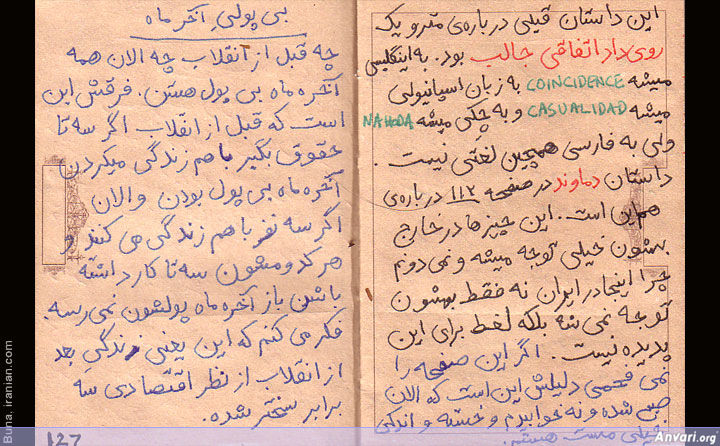 این داستان قبلی درباره‌ی مترو یک
روی داد اتفاقی جالب بود. به اینگلیسی
میشه COINCIDENCE به زبان اسپانیولی
میشه CASUALIDAD و به چکی میشه NAHODA
ولی به فارسی همچین لغتی نیست.
داستان دماوند در صفحه ۱۱۲ درباره‌ی
هم این است. این چیزها در خارج
بهشون خیلی توجه میشه و نمی دونم
چرا اینجا در ایران نه فقط بهشون
توجه نمی شه بلکه لغط برای این
پدیده نیست. اگر این صفحه را
نمی فهمی دلیلش این است که الان
صبح شده و نه خوابیدم و خسته و اندکی
خیلی مست هستم.
بی پولیِ آخر ماه
چه قبل از انقلاب چه الان همه
آخره ماه بی پول هستن. فرقش این
است که قبل از انقلاب اگر سه تا
حقوق بگیر با هم زندگی میکردن
آخره ماه بی پول بودن و الان
اگر سه نفر با هم زندگی می کنند و
هر کدومشون سه تا کار داشته
باشن باز آخره ماه پولشون نمی رسه.
فکر می کنم که این یعنی زندگی بعد
از انقلاب از نظر اقتصادی سه
برابر سختر شده.
127
Buna, iranian.com
Anvari.org